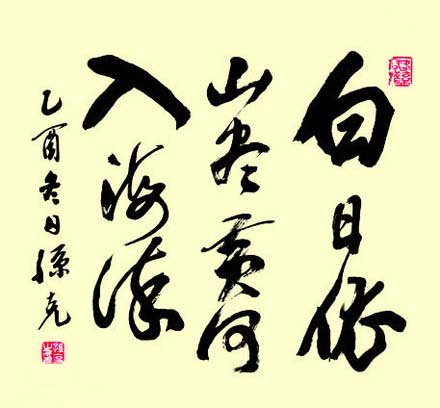 白日依
山尽黄河
入海流
乙酉冬日孫克